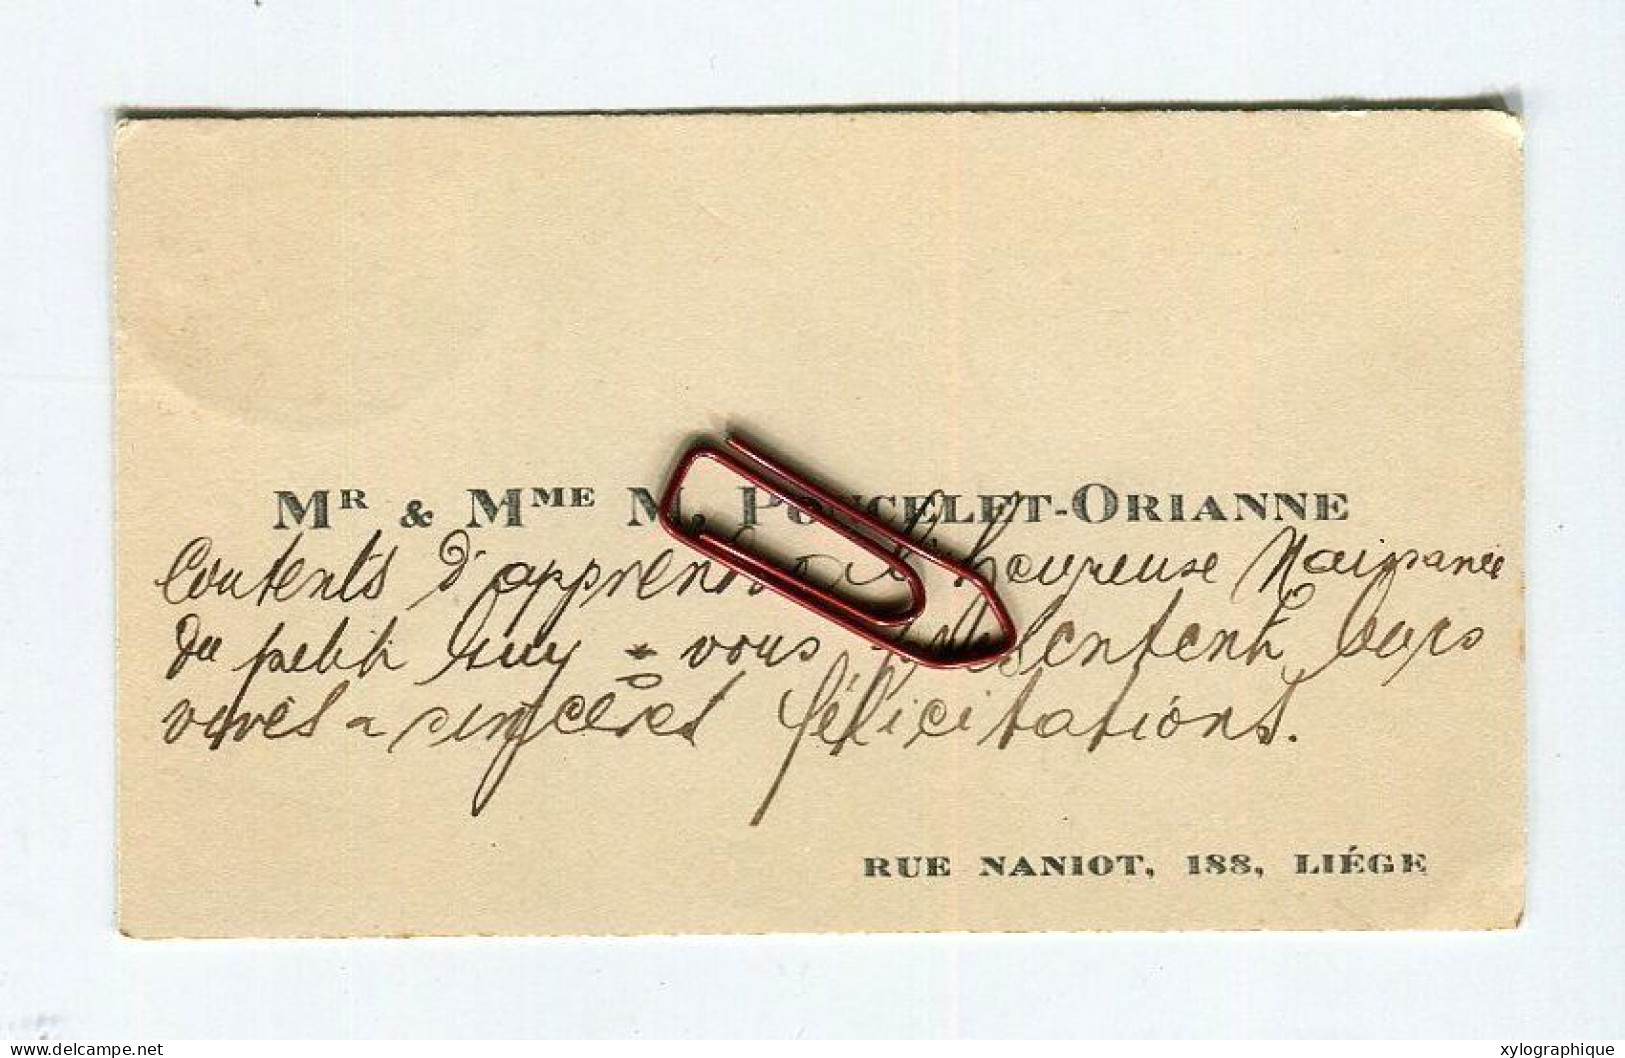 Mr & Mme M. Poncelet-Orianne
Contents d'apprendre l'heureuse Naissance
du petit Guy - vous présentent leurs
vives & sincères félicitations.
RUE NANIOT, 188, LIÉGE
www.delcampe.net
xylographique